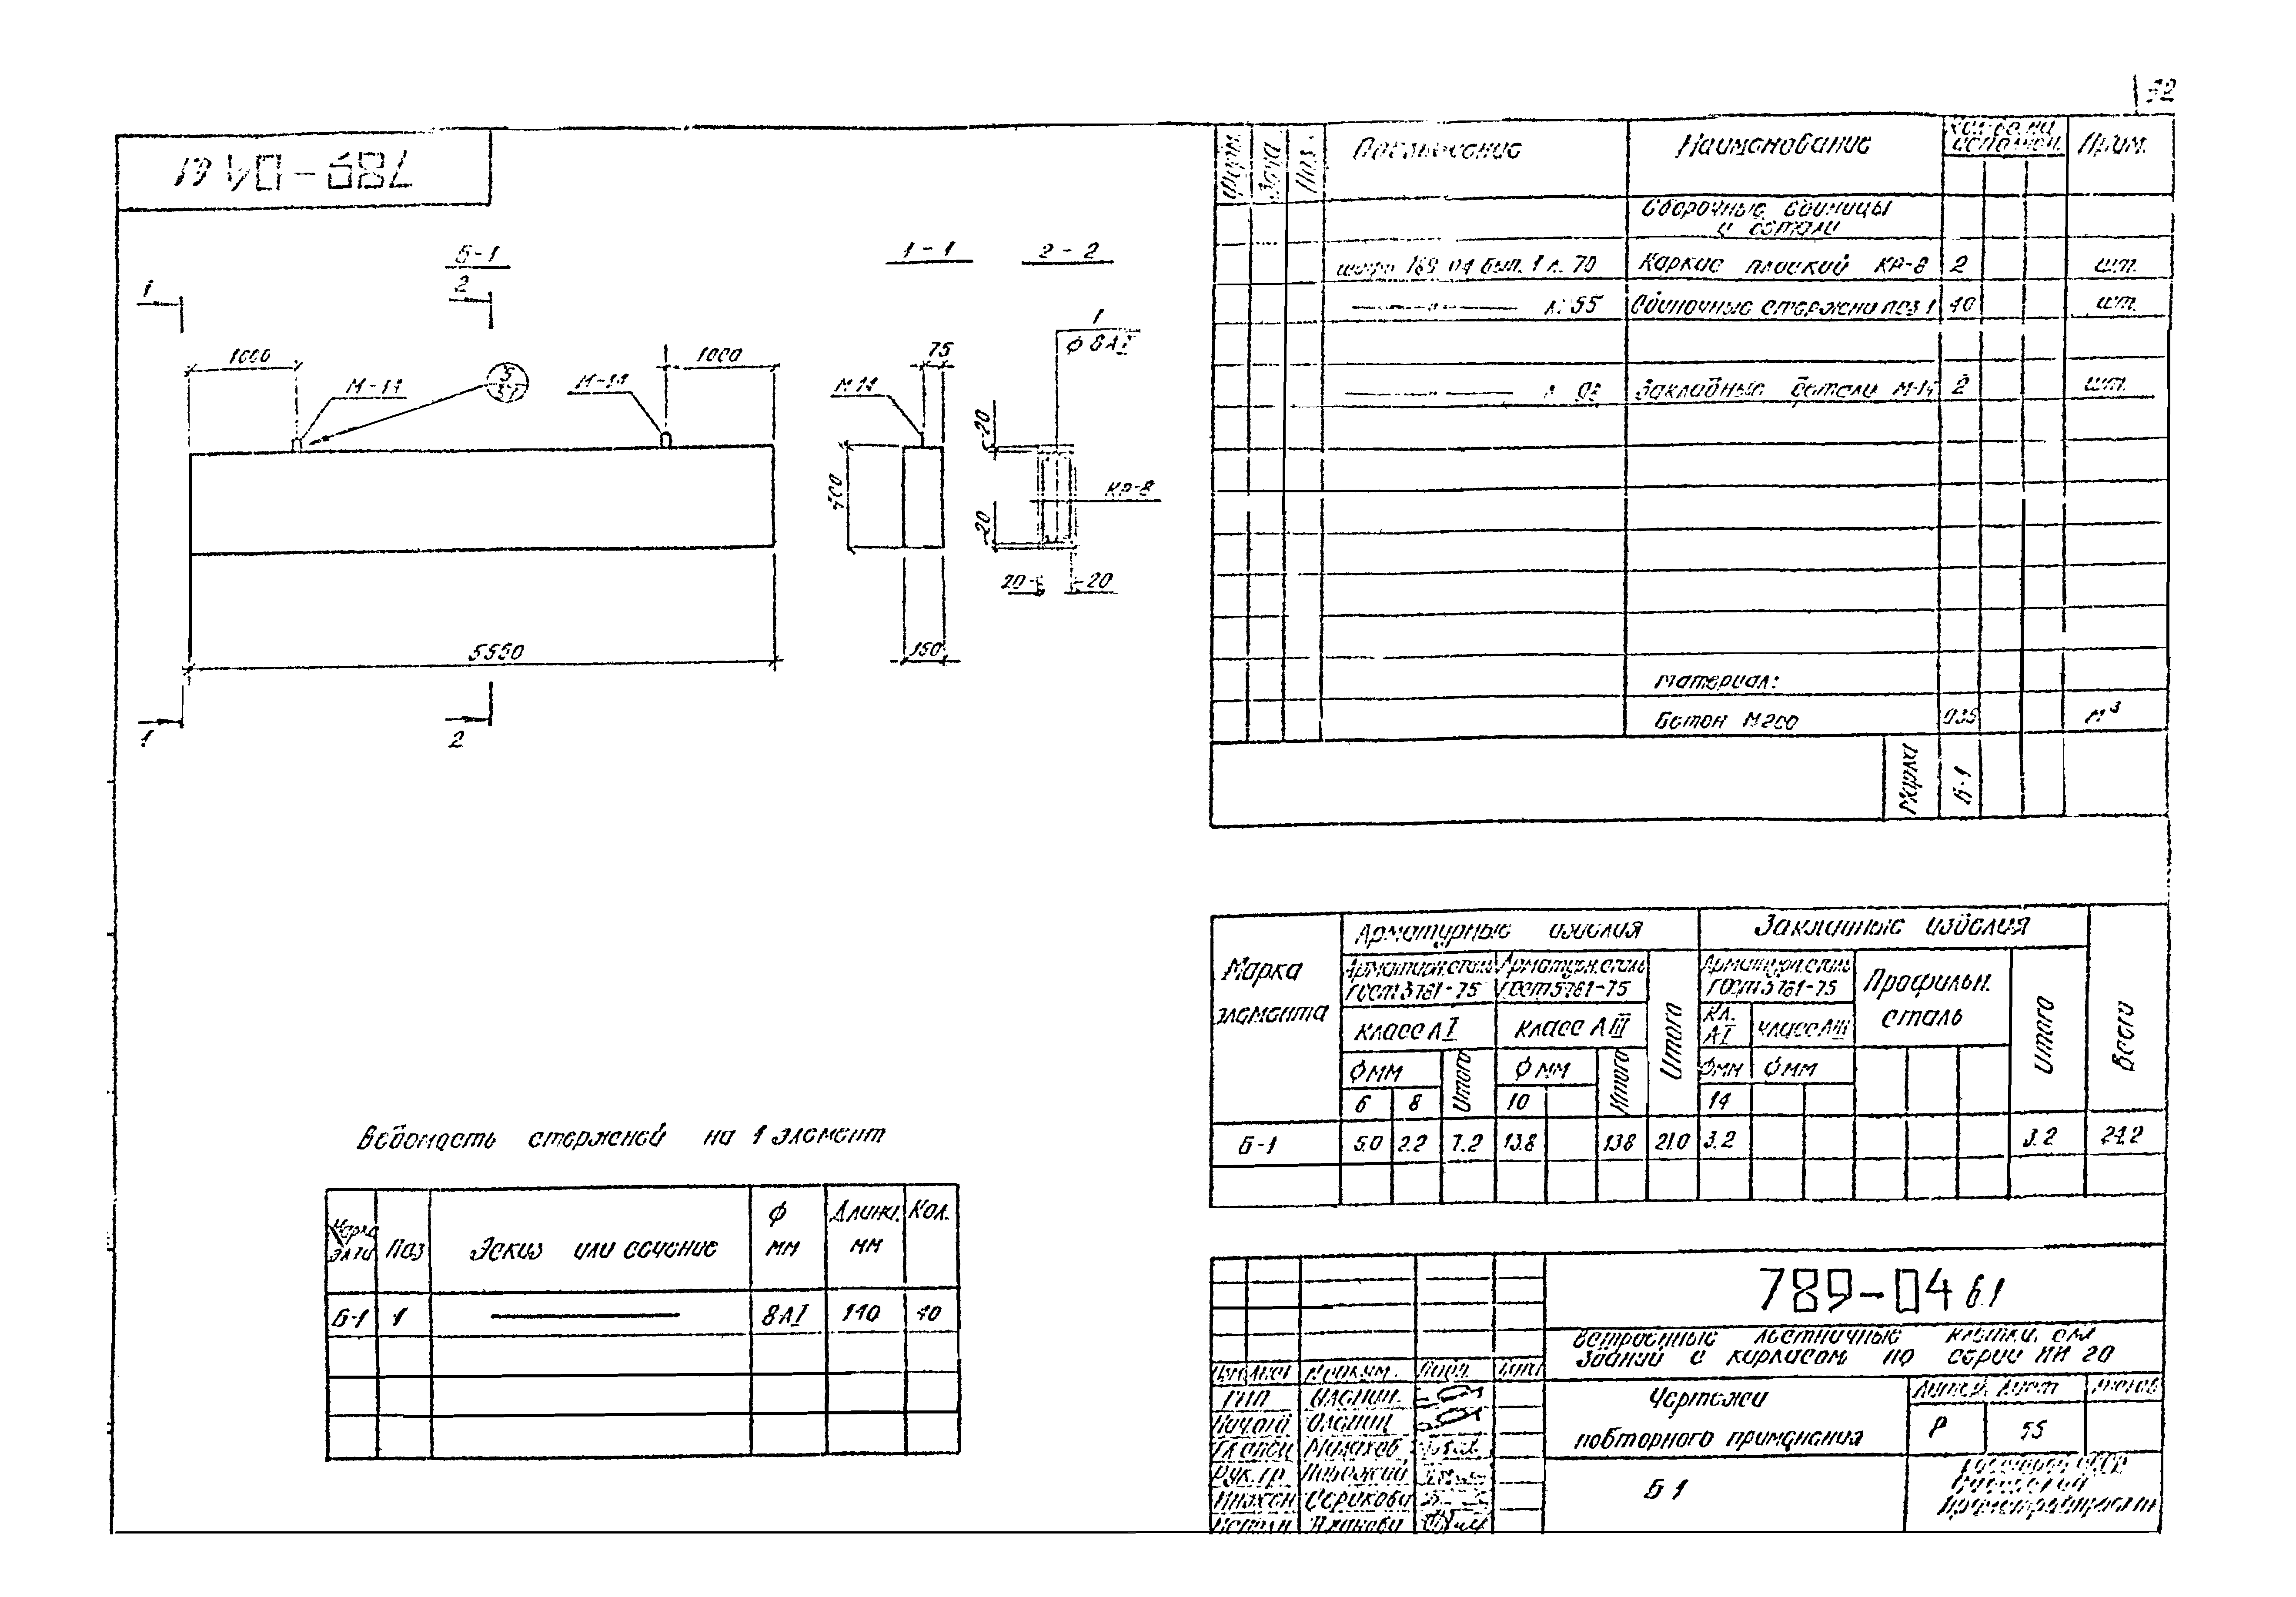 789-04 в1
Б-1
1-1
2-2
1
2
1
ф 8АI
1000
1000
75
М-14
М-14
М-14
20
КР-8
20
20
20
5550
150
1
2
Форм.
Зона
Поз.
Обозначение
Наименование
Кол-во на исполнен.
Прим.
Сборочные единицы
и детали
шифр 789-04 вып. 1 л. 70
Каркас плоский КР-8
2
шт.
—— " —— л. 55
Одиночные стержни поз 1
40
шт.
—— " —— л.
Закладные детали М-14
2
шт.
Материал:
Бетон М200
0.35
м³
Марка
Б-1
Марка
элемента
Арматурные изделия
Закладные изделия
Всего
Арматурн. сталь
ГОСТ 5781-75
Арматурн. сталь
ГОСТ 5781-75
Итого
Арматурн. сталь
ГОСТ 5781-75
Профильн.
сталь
Итого
Класс АI
Класс АIII
Кл.
АI
Класс АIII
ф мм
Итого
ф мм
Итого
ф мм
ф мм
6
8
10
14
Б-1
5.0
2.2
7.2
13.8
13.8
21.0
3.2
3.2
24.2
Ведомость стержней на 1 элемент
Марка
эл-та
Поз
Эскиз или сечение
ф
мм
Длина
мм
Кол.
Б-1
1
8АI
110
40
789-04 в.1
Встроенные лестничные клетки для
зданий с каркасом по серии ИИ 20
Чертежи
повторного применения
Б 1
Лист
Р
55
№ докум.
Подп.
ГИП
Гл. спец
Рук. гр.
Серикова
Исполн.
Госстрой СССР